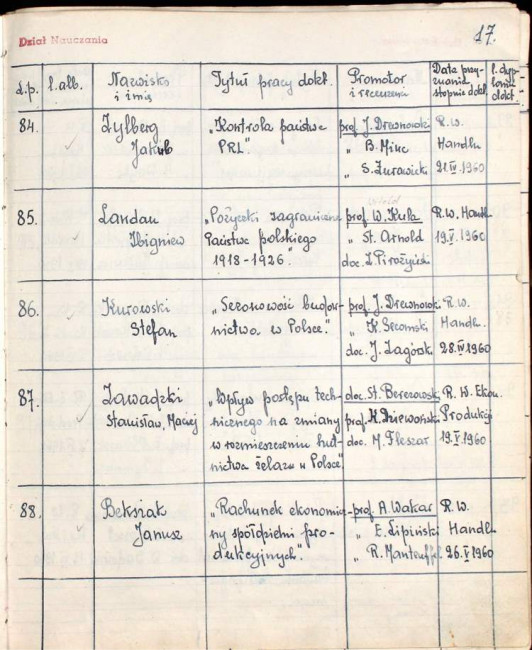 Dział Nauczania
17.
l.p. l. alb. Nazwisko i imię Tytuł pracy dokt. Promotor i recenzenci Data przyznania stopnia dokt. l. dyplomu dokt.
84. Zylberg Jakub
„Kontrola państw. PRL"
prof. J. Drewnowski
„ B. Minc
„ S. Żurawicki
R.W.
Handlu
21.IV.1960
85. Landau Zbigniew
„Pożyczki zagraniczne
Państwa polskiego
1918-1926"
Witold
prof. W. Kula
„ St. Arnold
doc. Z. Pirożyński
R.W. Handl.
19.V.1960
86. Kurowski Stefan
„Sezonowość budow-
nictwa w Polsce"
prof. J. Drewnowski
„ K. Secomski
doc. J. Zagórski
R.W.
Handl.
28.IV.1960
87. Zawadzki
Stanisław, Maciej
„Wpływ postępu tech-
nicznego na zmiany
w rozmieszczeniu hut-
nictwa żelaza w Polsce"
doc. St. Berezowski
prof. K. Dziewoński
doc. M. Fleszar
R.W. Ekon.
Produkcji
19.V.1960
88. Beksiak
Janusz
„Rachunek ekonomicz-
ny spółdzielni pro-
dukcyjnych"
prof. A. Wakar
„ E. Lipiński
„ R. Manteuffel
R.W.
Handl.
26.V.1960